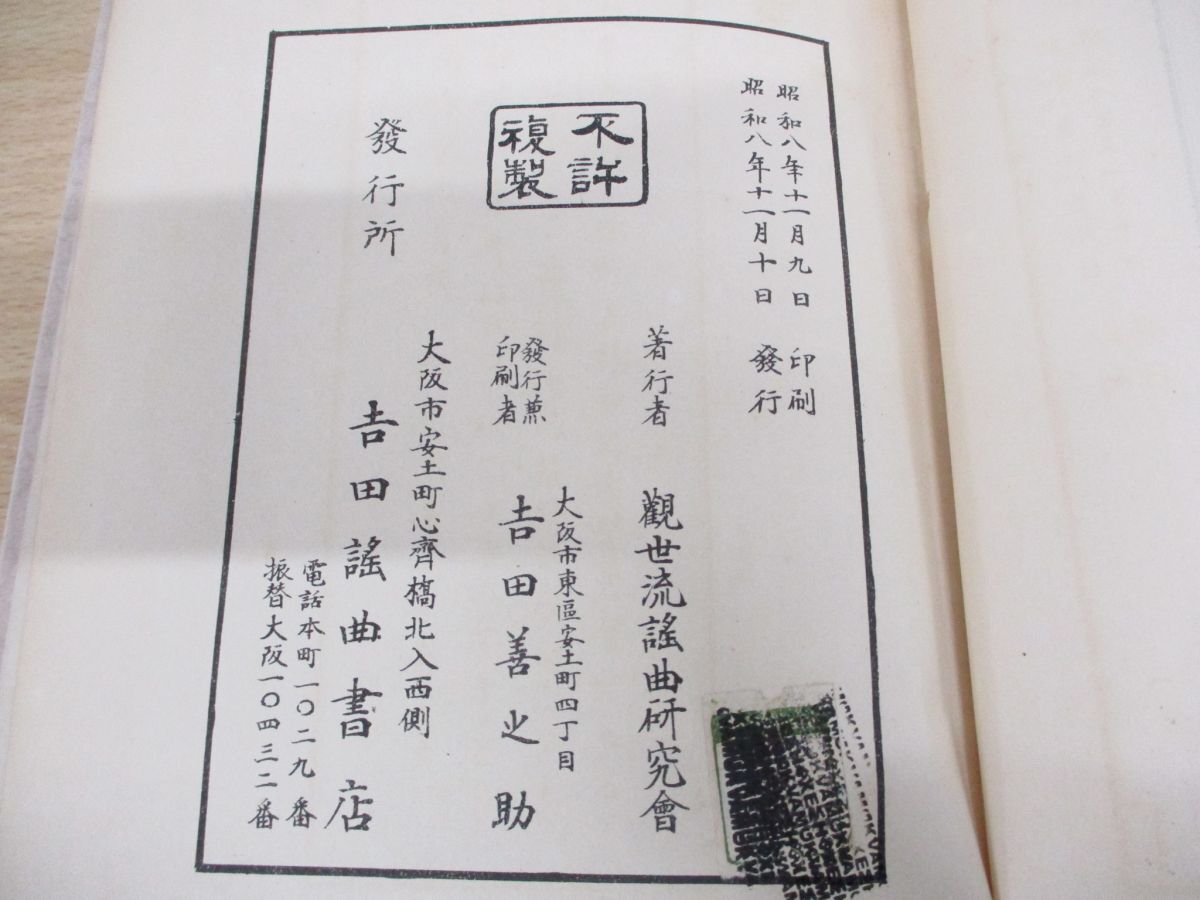 昭和八年十一月九日 印刷
昭和八年十一月十日 發行
不許
複製
著行者 觀世流謠曲研究會
大阪市東區安土町四丁目
發行兼
印刷者
吉田善之助
發行所
大阪市安土町心齊橋北入西側
吉田謠曲書店
電話本町一〇二九番
振替大阪一〇四三二番